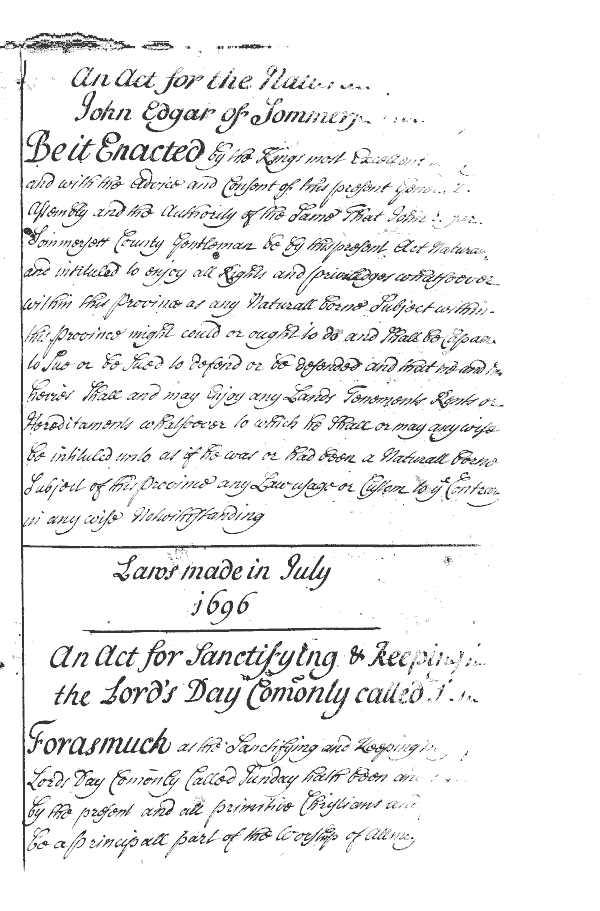 An Act for the
John Edgar of
Be it Enacted by the Kings most Excellent
and with the Advice and Consent of this present
Assembly and the Authority of the Same That John
Sommersett County Gentleman be by this present Act
and intituled to enjoy all Rights and priviledges whatsoever
within this Province as any Naturall borne Subject within
this Province might could or ought to do and shall be
to Sue or be Sued to defend or be defended and that he and
heires shall and may Enjoy any Lands Tenements Rents or
Hereditaments whatsoever to which he shall or may any wise
be intituled unto as if he was or had been a Naturall borne
Subject of this Province any Law usage or Custom to ye
in any wise Notwithstanding
Laws made in July
1696
An Act for Sanctifying & keeping
the Lord's Day Comonly called
Forasmuch as the Sanctifying and Keeping
Lords Day Comonly Called Sunday hath been
by the present and all primitive Christians
be a principall part of the Worship of